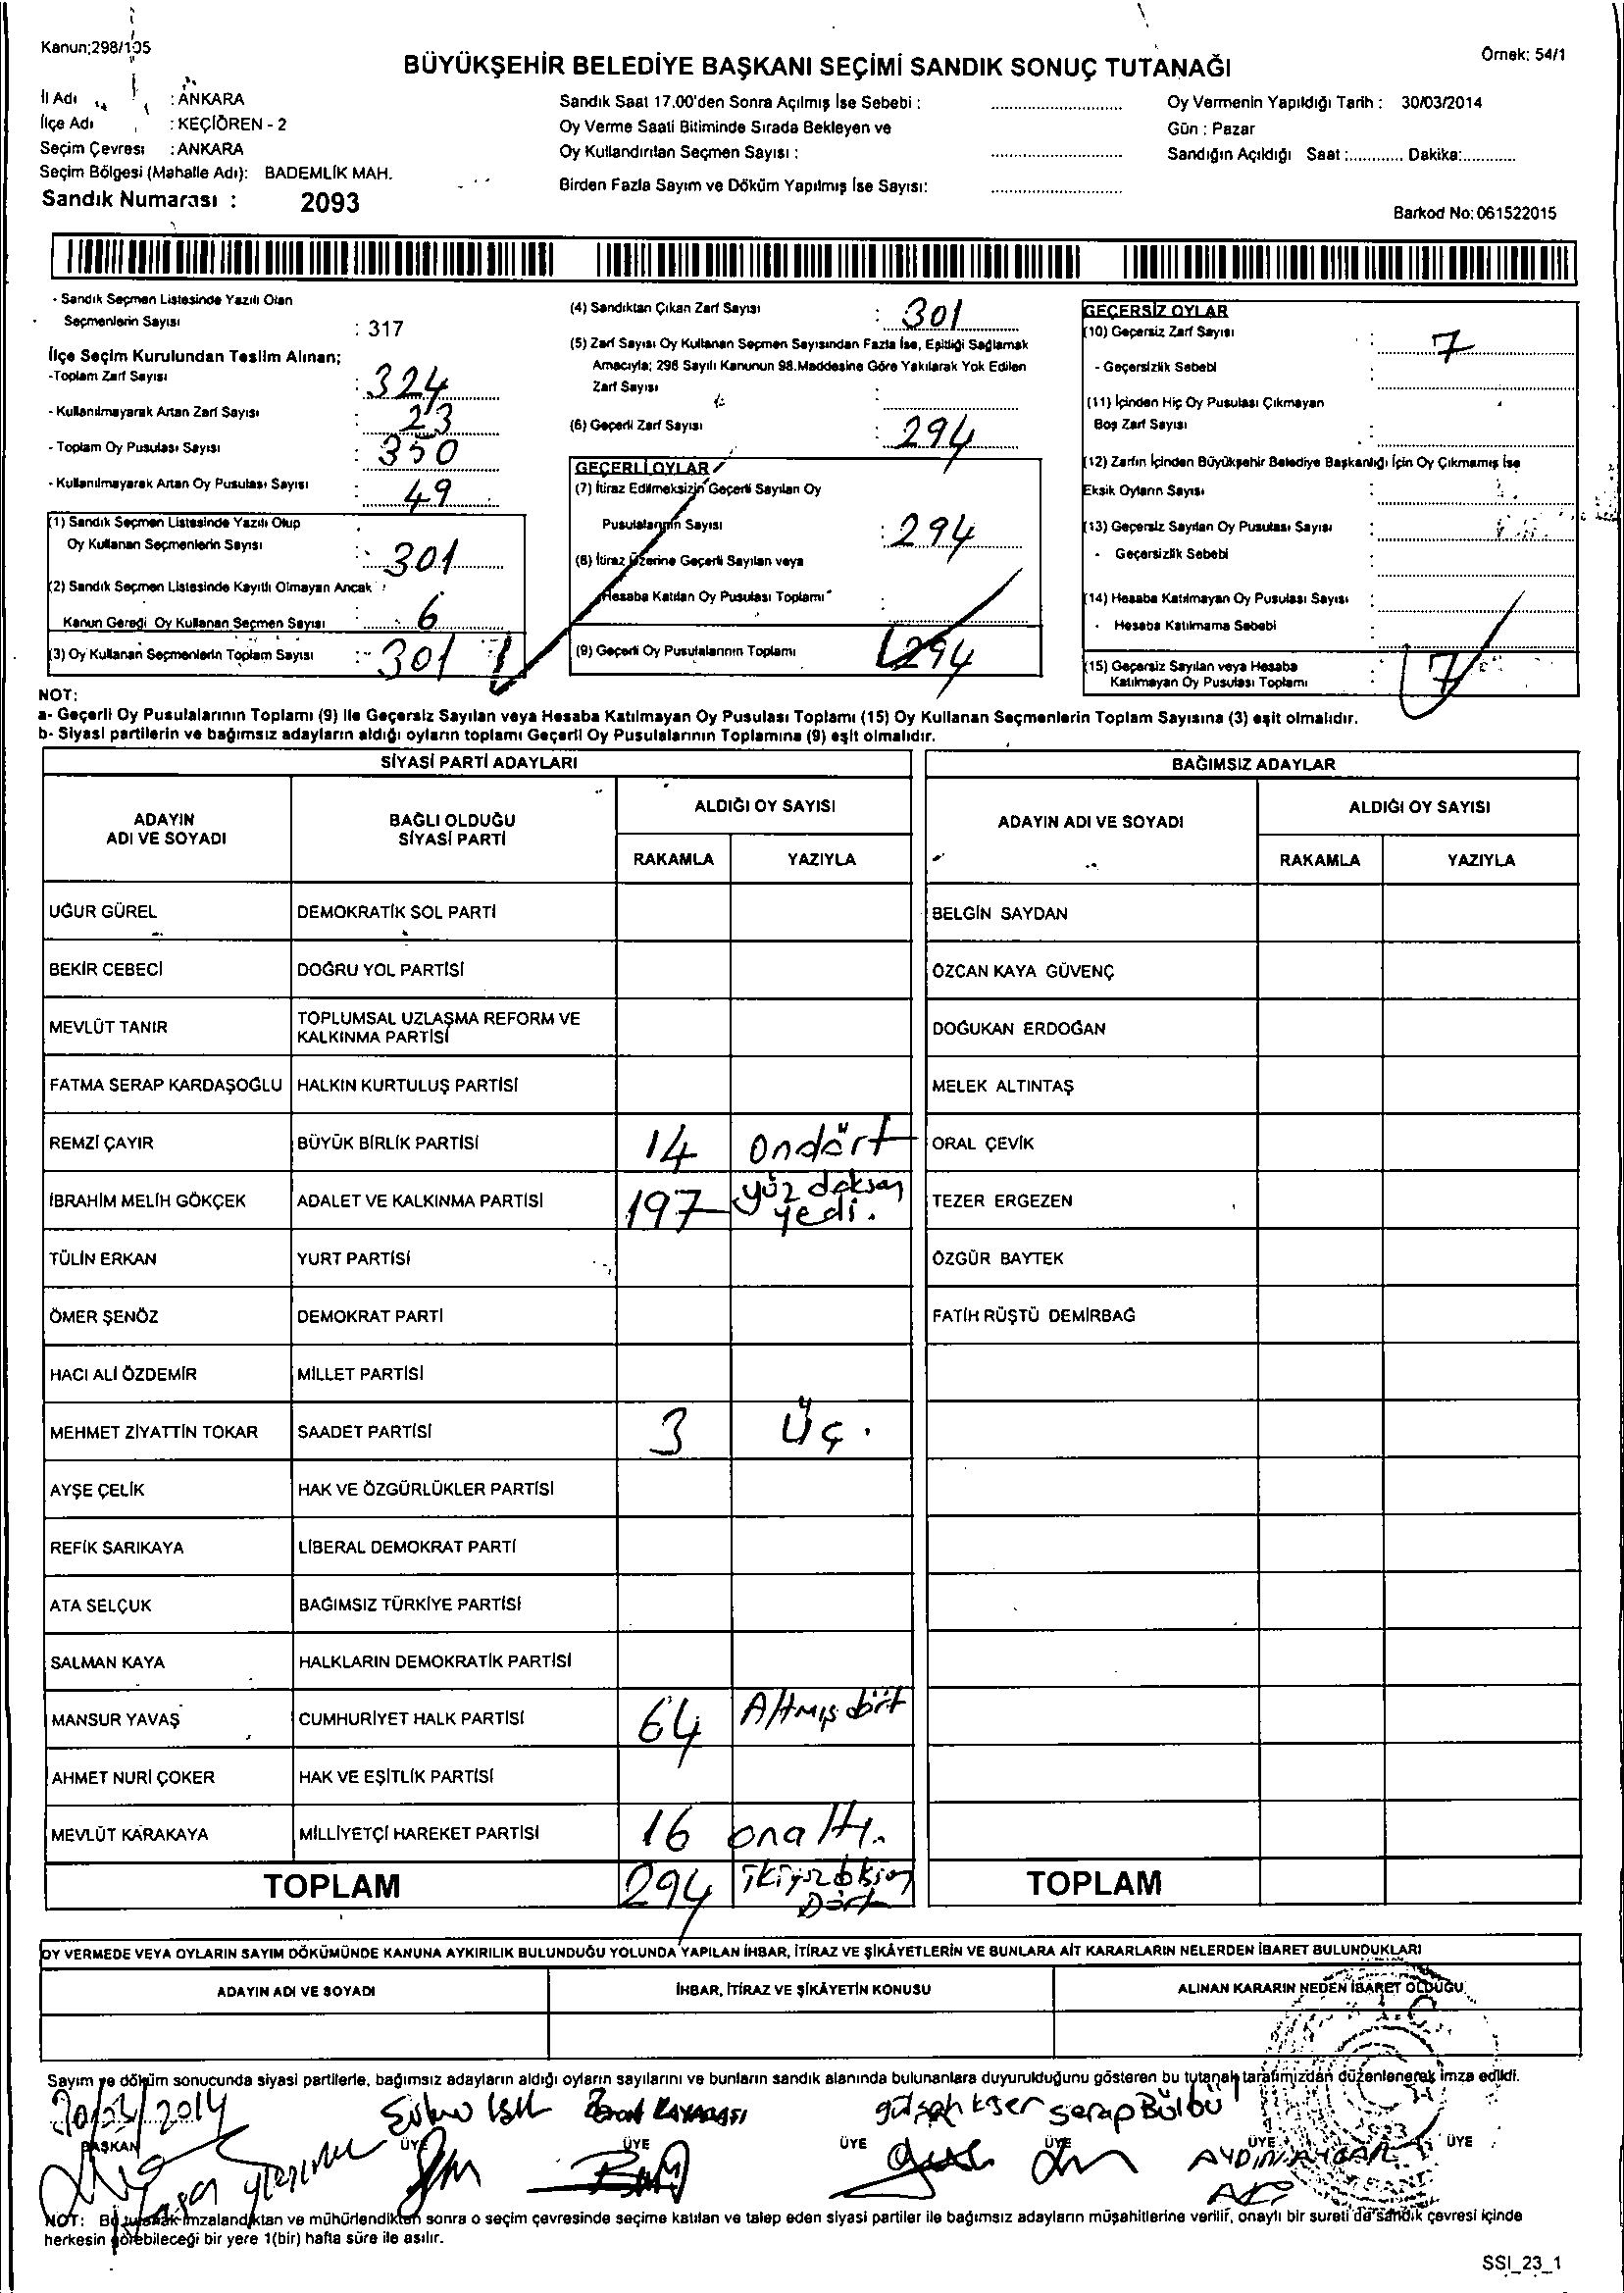 Kanun;298/105
Örnek: 54/1
BÜYÜKŞEHİR BELEDİYE BAŞKANI SEÇİMİ SANDIK SONUÇ TUTANAĞI
İl Adı : ANKARA
İlçe Adı : KEÇİÖREN - 2
Seçim Çevresi : ANKARA
Seçim Bölgesi (Mahalle Adı): BADEMLİK MAH.
Sandık Numarası : 2093
Sandık Saat 17.00'den Sonra Açılmış İse Sebebi :
Oy Verme Saati Bitiminde Sırada Bekleyen ve
Oy Kullandırılan Seçmen Sayısı :
Birden Fazla Sayım ve Döküm Yapılmış İse Sayısı:
Oy Vermenin Yapıldığı Tarih : 30/03/2014
Gün : Pazar
Sandığın Açıldığı Saat :............ Dakika:............
Barkod No: 061522015
- Sandık Seçmen Listesinde Yazılı Olan
Seçmenlerin Sayısı : 317
İlçe Seçim Kurulundan Teslim Alınan;
-Toplam Zarf Sayısı : 324
- Kullanılmayarak Artan Zarf Sayısı : 23
- Toplam Oy Pusulası Sayısı : 350
- Kullanılmayarak Artan Oy Pusulası Sayısı : 49
(1) Sandık Seçmen Listesinde Yazılı Olup
Oy Kullanan Seçmenlerin Sayısı : 301
(2) Sandık Seçmen Listesinde Kayıtlı Olmayan Ancak
Kanun Gereği Oy Kullanan Seçmen Sayısı : 6
(3) Oy Kullanan Seçmenlerin Toplam Sayısı : 301
(4) Sandıktan Çıkan Zarf Sayısı : 301
(5) Zarf Sayısı Oy Kullanan Seçmen Sayısından Fazla İse, Eşitliği Sağlamak
Amacıyla; 298 Sayılı Kanunun 98.Maddesine Göre Yakılarak Yok Edilen
Zarf Sayısı :
(6) Geçerli Zarf Sayısı : 294
GEÇERLİ OYLAR
(7) İtiraz Edilmeksizin Geçerli Sayılan Oy
Pusulalarının Sayısı : 294
(8) İtiraz Üzerine Geçerli Sayılan veya
Hesaba Katılan Oy Pusulası Toplamı :
(9) Geçerli Oy Pusulalarının Toplamı 294
GEÇERSİZ OYLAR
(10) Geçersiz Zarf Sayısı : 7
- Geçersizlik Sebebi
(11) İçinden Hiç Oy Pusulası Çıkmayan
Boş Zarf Sayısı :
(12) Zarfın İçinden Büyükşehir Belediye Başkanlığı İçin Oy Çıkmamış İse
Eksik Oyların Sayısı :
(13) Geçersiz Sayılan Oy Pusulası Sayısı :
- Geçersizlik Sebebi
(14) Hesaba Katılmayan Oy Pusulası Sayısı :
- Hesaba Katılmama Sebebi
(15) Geçersiz Sayılan veya Hesaba
Katılmayan Oy Pusulası Toplamı : 7
NOT:
a- Geçerli Oy Pusulalarının Toplamı (9) ile Geçersiz Sayılan veya Hesaba Katılmayan Oy Pusulası Toplamı (15) Oy Kullanan Seçmenlerin Toplam Sayısına (3) eşit olmalıdır.
b- Siyasi partilerin ve bağımsız adayların aldığı oyların toplamı Geçerli Oy Pusulalarının Toplamına (9) eşit olmalıdır.
SİYASİ PARTİ ADAYLARI BAĞIMSIZ ADAYLAR
ADAYIN ADI VE SOYADI BAĞLI OLDUĞU SİYASİ PARTİ ALDIĞI OY SAYISI ADAYIN ADI VE SOYADI ALDIĞI OY SAYISI
RAKAMLA YAZIYLA RAKAMLA YAZIYLA
UĞUR GÜREL DEMOKRATİK SOL PARTİ BELGİN SAYDAN
BEKİR CEBECİ DOĞRU YOL PARTİSİ ÖZCAN KAYA GÜVENÇ
MEVLÜT TANIR TOPLUMSAL UZLAŞMA REFORM VE KALKINMA PARTİSİ DOĞUKAN ERDOĞAN
FATMA SERAP KARDAŞOĞLU HALKIN KURTULUŞ PARTİSİ MELEK ALTINTAŞ
REMZİ ÇAYIR BÜYÜK BİRLİK PARTİSİ 14 ondört ORAL ÇEVİK
İBRAHİM MELİH GÖKÇEK ADALET VE KALKINMA PARTİSİ 197 yüz doksan yedi. TEZER ERGEZEN
TÜLİN ERKAN YURT PARTİSİ ÖZGÜR BAYTEK
ÖMER ŞENÖZ DEMOKRAT PARTİ FATİH RÜŞTÜ DEMİRBAĞ
HACI ALİ ÖZDEMİR MİLLET PARTİSİ
MEHMET ZİYATTİN TOKAR SAADET PARTİSİ 3 üç.
AYŞE ÇELİK HAK VE ÖZGÜRLÜKLER PARTİSİ
REFİK SARIKAYA LİBERAL DEMOKRAT PARTİ
ATA SELÇUK BAĞIMSIZ TÜRKİYE PARTİSİ
SALMAN KAYA HALKLARIN DEMOKRATİK PARTİSİ
MANSUR YAVAŞ CUMHURİYET HALK PARTİSİ 64 Altmış dört
AHMET NURİ ÇOKER HAK VE EŞİTLİK PARTİSİ
MEVLÜT KARAKAYA MİLLİYETÇİ HAREKET PARTİSİ 16 onaltı.
TOPLAM 294 TOPLAM
OY VERMEDE VEYA OYLARIN SAYIM DÖKÜMÜNDE KANUNA AYKIRILIK BULUNDUĞU YOLUNDA YAPILAN İHBAR, İTİRAZ VE ŞİKÂYETLERİN VE BUNLARA AİT KARARLARIN NELERDEN İBARET BULUNDUKLARI
ADAYIN ADI VE SOYADI İHBAR, İTİRAZ VE ŞİKÂYETİN KONUSU ALINAN KARARIN NEDEN İBARET OLDUĞU
Sayım ve döküm sonucunda siyasi partilerle, bağımsız adayların aldığı oyların sayılarını ve bunların sandık alanında bulunanlara duyurulduğunu gösteren bu tutanak tarafımızdan düzenlenerek imza edildi.
30/03/2014
Serap Bülbül
BAŞKAN ÜYE ÜYE ÜYE ÜYE ÜYE ÜYE
NOT: Bu tutanak imzalandıktan ve mühürlendikten sonra o seçim çevresinde seçime katılan ve talep eden siyasi partiler ile bağımsız adayların müşahitlerine verilir, onaylı bir sureti de sandık çevresi içinde
herkesin görebileceği bir yere 1(bir) hafta süre ile asılır.
SSI_23_1